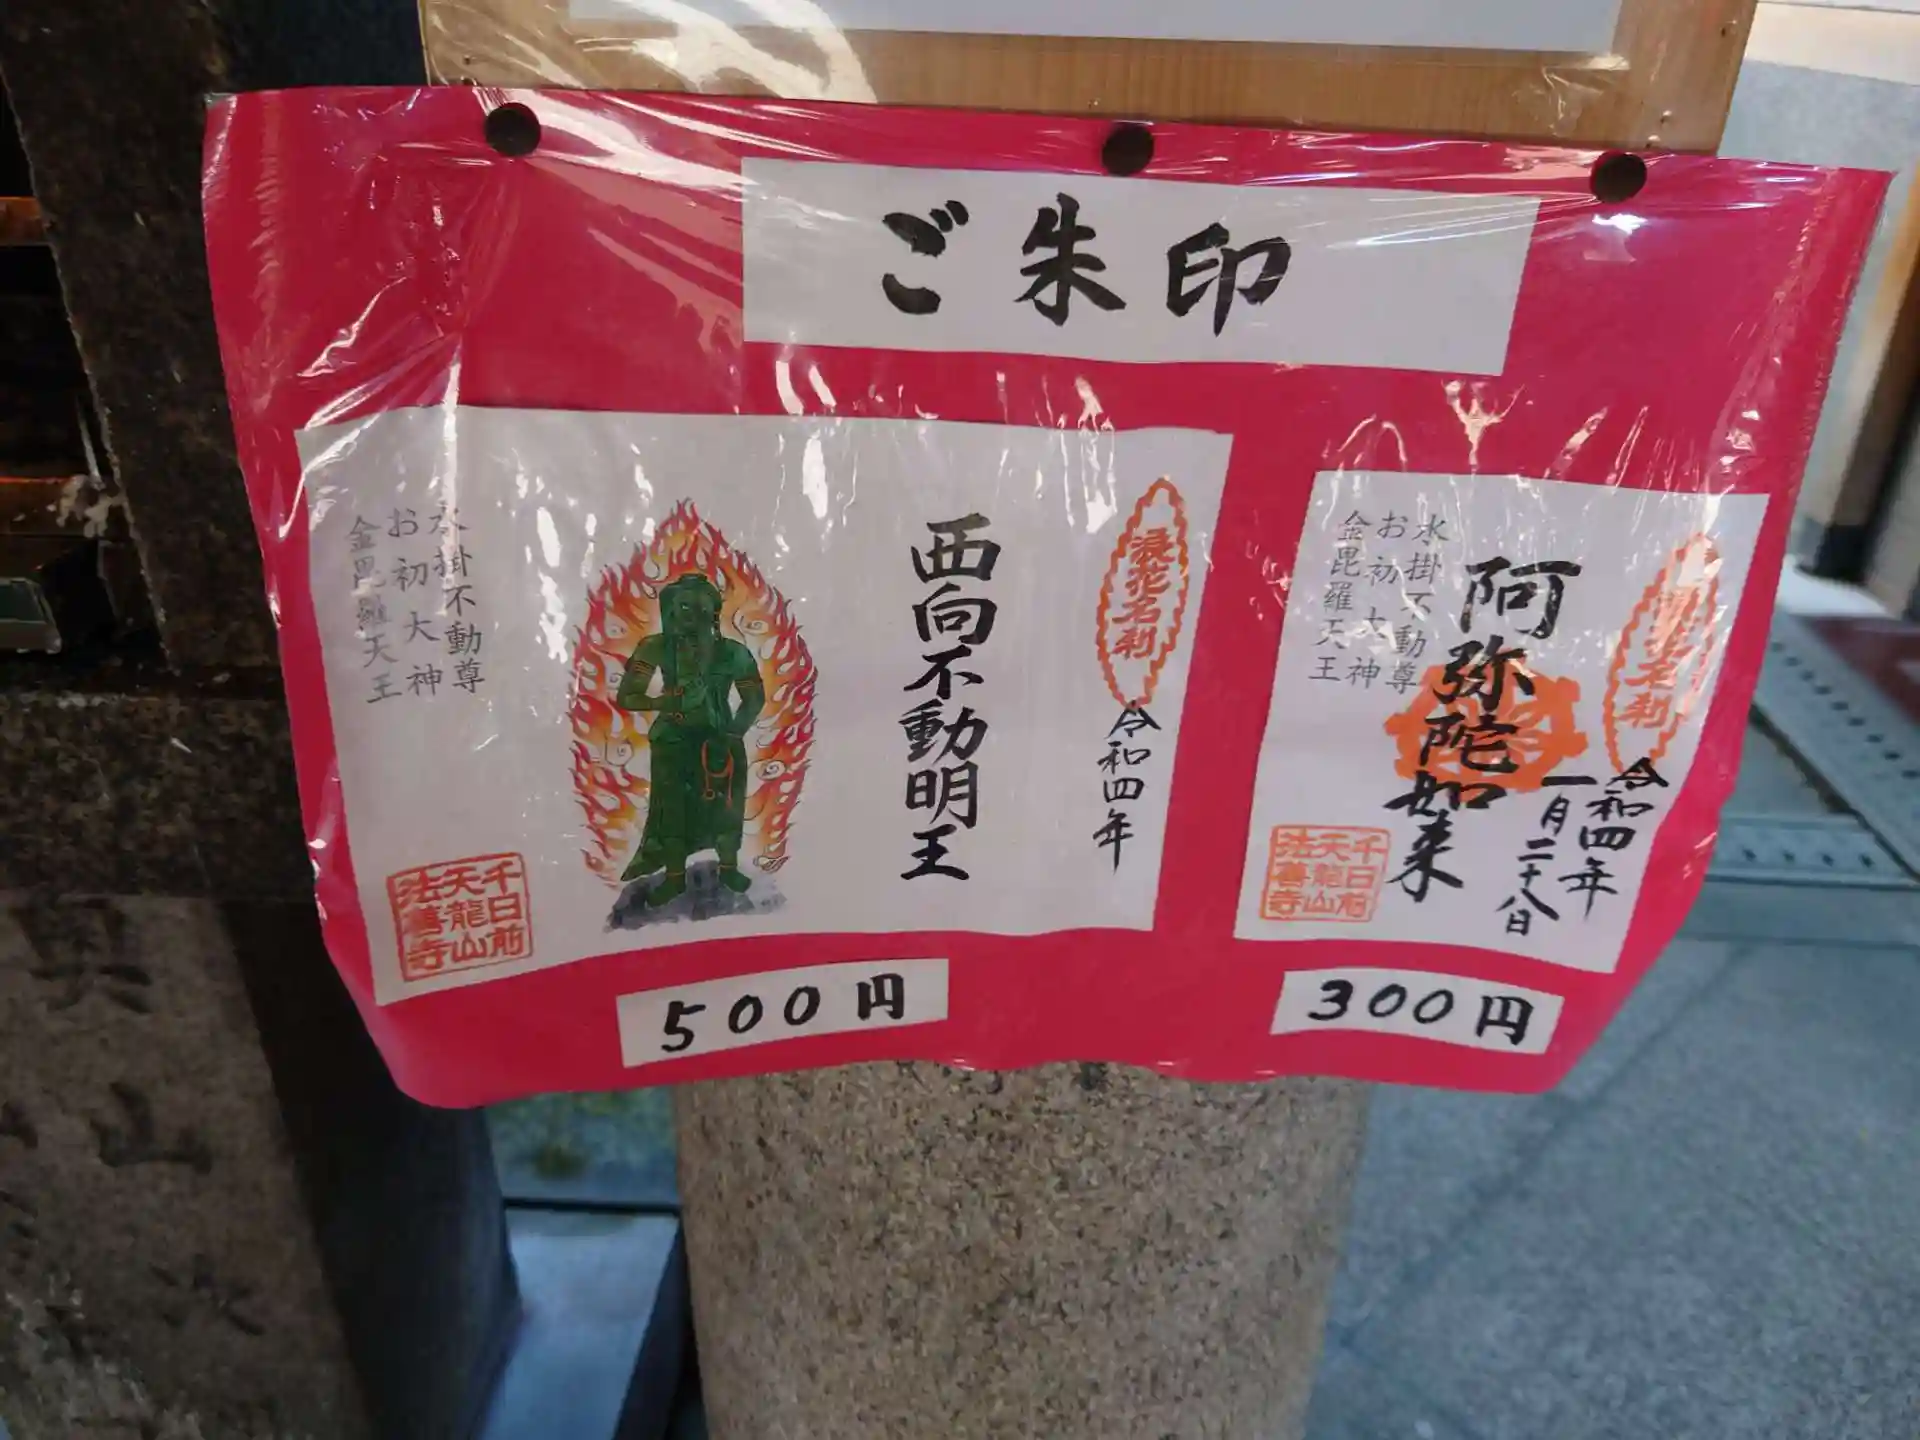 ご朱印
浪花名刹
令和四年
西向不動明王
水掛不動尊
お初大神
金毘羅天王
千日前
天龍山
法善寺
500円
浪花名刹
令和四年
一月二十八日
阿弥陀如来
水掛不動尊
お初大神
金毘羅天王
千日前
天龍山
法善寺
300円